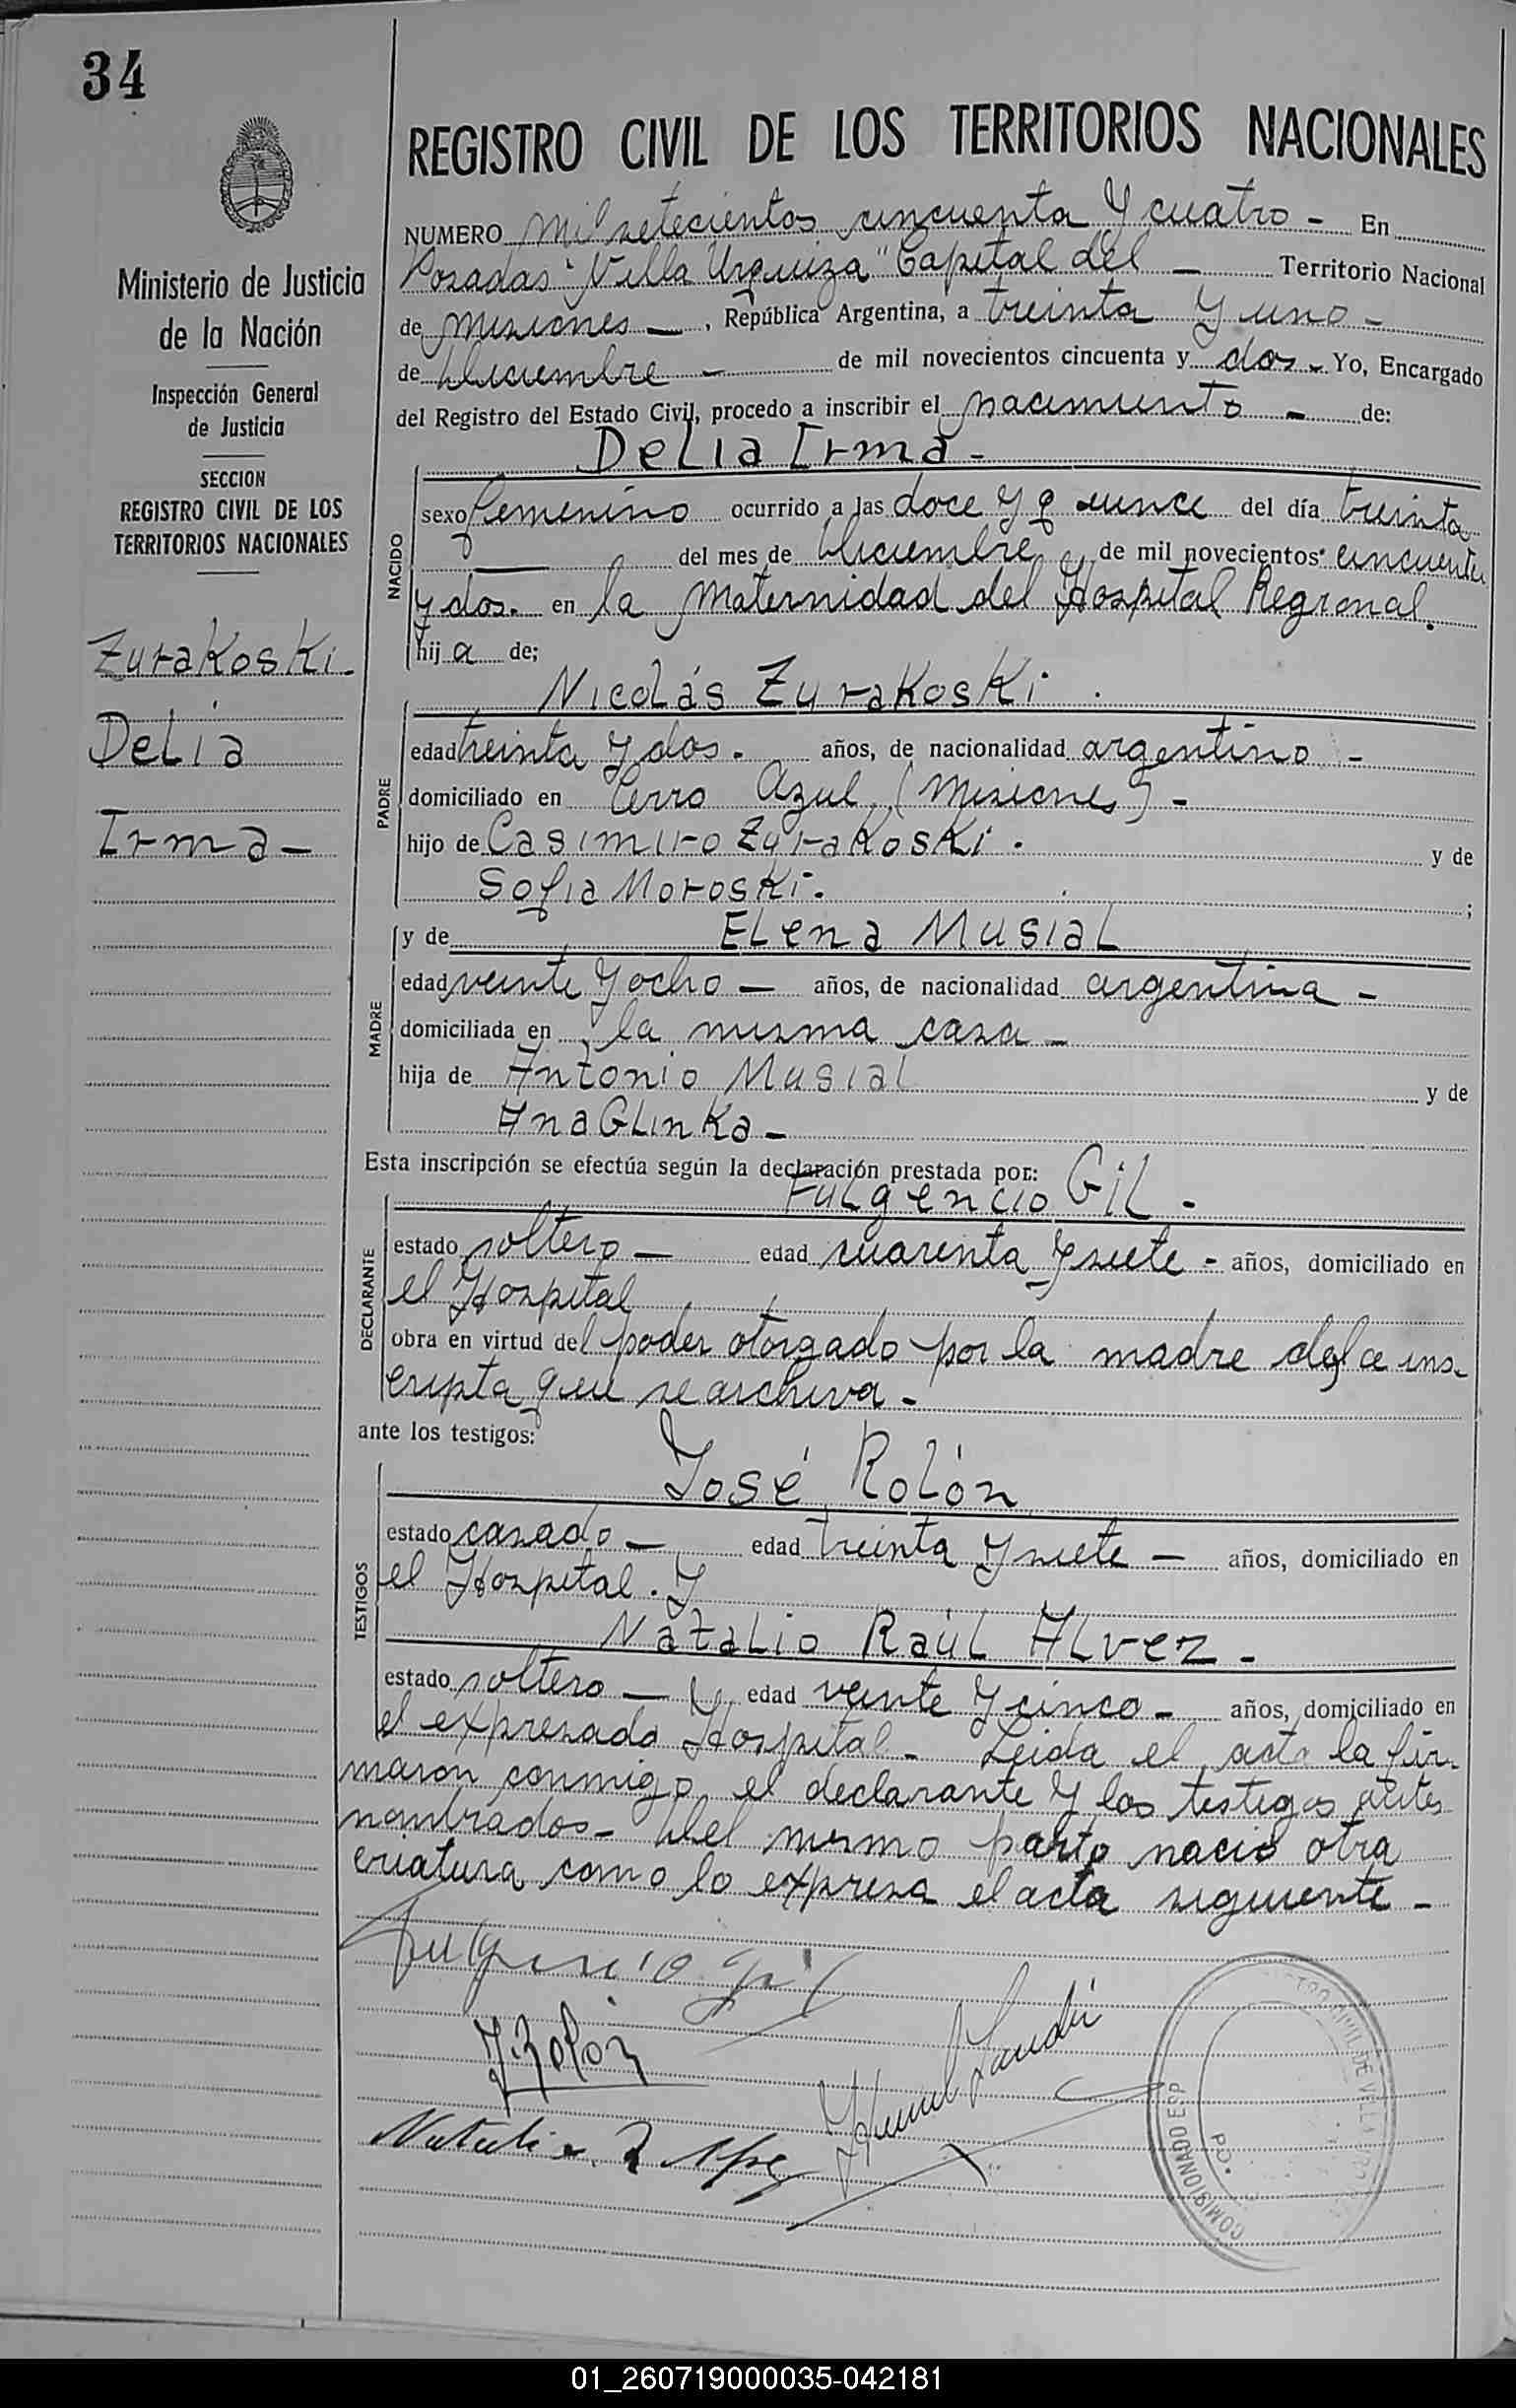 34
REGISTRO CIVIL DE LOS TERRITORIOS NACIONALES
Ministerio de Justicia
de la Nación
Inspección General
de Justicia
SECCION
REGISTRO CIVIL DE LOS
TERRITORIOS NACIONALES
Zurakoski
Delia
Irma-
NUMERO mil setecientos cincuenta y cuatro - En
Posadas "Villa Urquiza" Capital del - Territorio Nacional
de Misiones -, República Argentina, a treinta y uno -
de Diciembre - de mil novecientos cincuenta y dos - Yo, Encargado
del Registro del Estado Civil, procedo a inscribir el nacimiento - de:
Delia Irma -
NACIDO
sexo femenino ocurrido a las doce y quince del día treinta
- del mes de Diciembre de mil novecientos cincuenta
y dos. en la Maternidad del Hospital Regional.
hij a de;
Nicolás Zurakoski.
PADRE
edad treinta y dos. años, de nacionalidad argentino -
domiciliado en Cerro Azul, (Misiones) -
hijo de Casimiro Zurakoski. y de
Sofia Moroski. ;
y de Elena Musial
MADRE
edad veinte y ocho - años, de nacionalidad argentina -
domiciliada en la misma casa -
hija de Antonio Musial y de
Ana Glinka -
Esta inscripción se efectúa según la declaración prestada por:
Fulgencio Gil -
DECLARANTE
estado soltero - edad cuarenta y siete - años, domiciliado en
el Hospital
obra en virtud del poder otorgado por la madre de la ins-
cripta que se archiva -
ante los testigos:
José Rolón
TESTIGOS
estado casado - edad treinta y siete - años, domiciliado en
el Hospital. y
Natalio Raúl Alvez -
estado soltero - y edad veinte y cinco - años, domiciliado en
el expresado Hospital - Leida el acta la fir-
maron conmigo el declarante y los testigos antes
nombrados - Del mismo parto nació otra
criatura como lo expresa el acta siguiente -
Fulgencio Gil
J. Rolón
COMISIONADO ESP
01_260719000035-042181